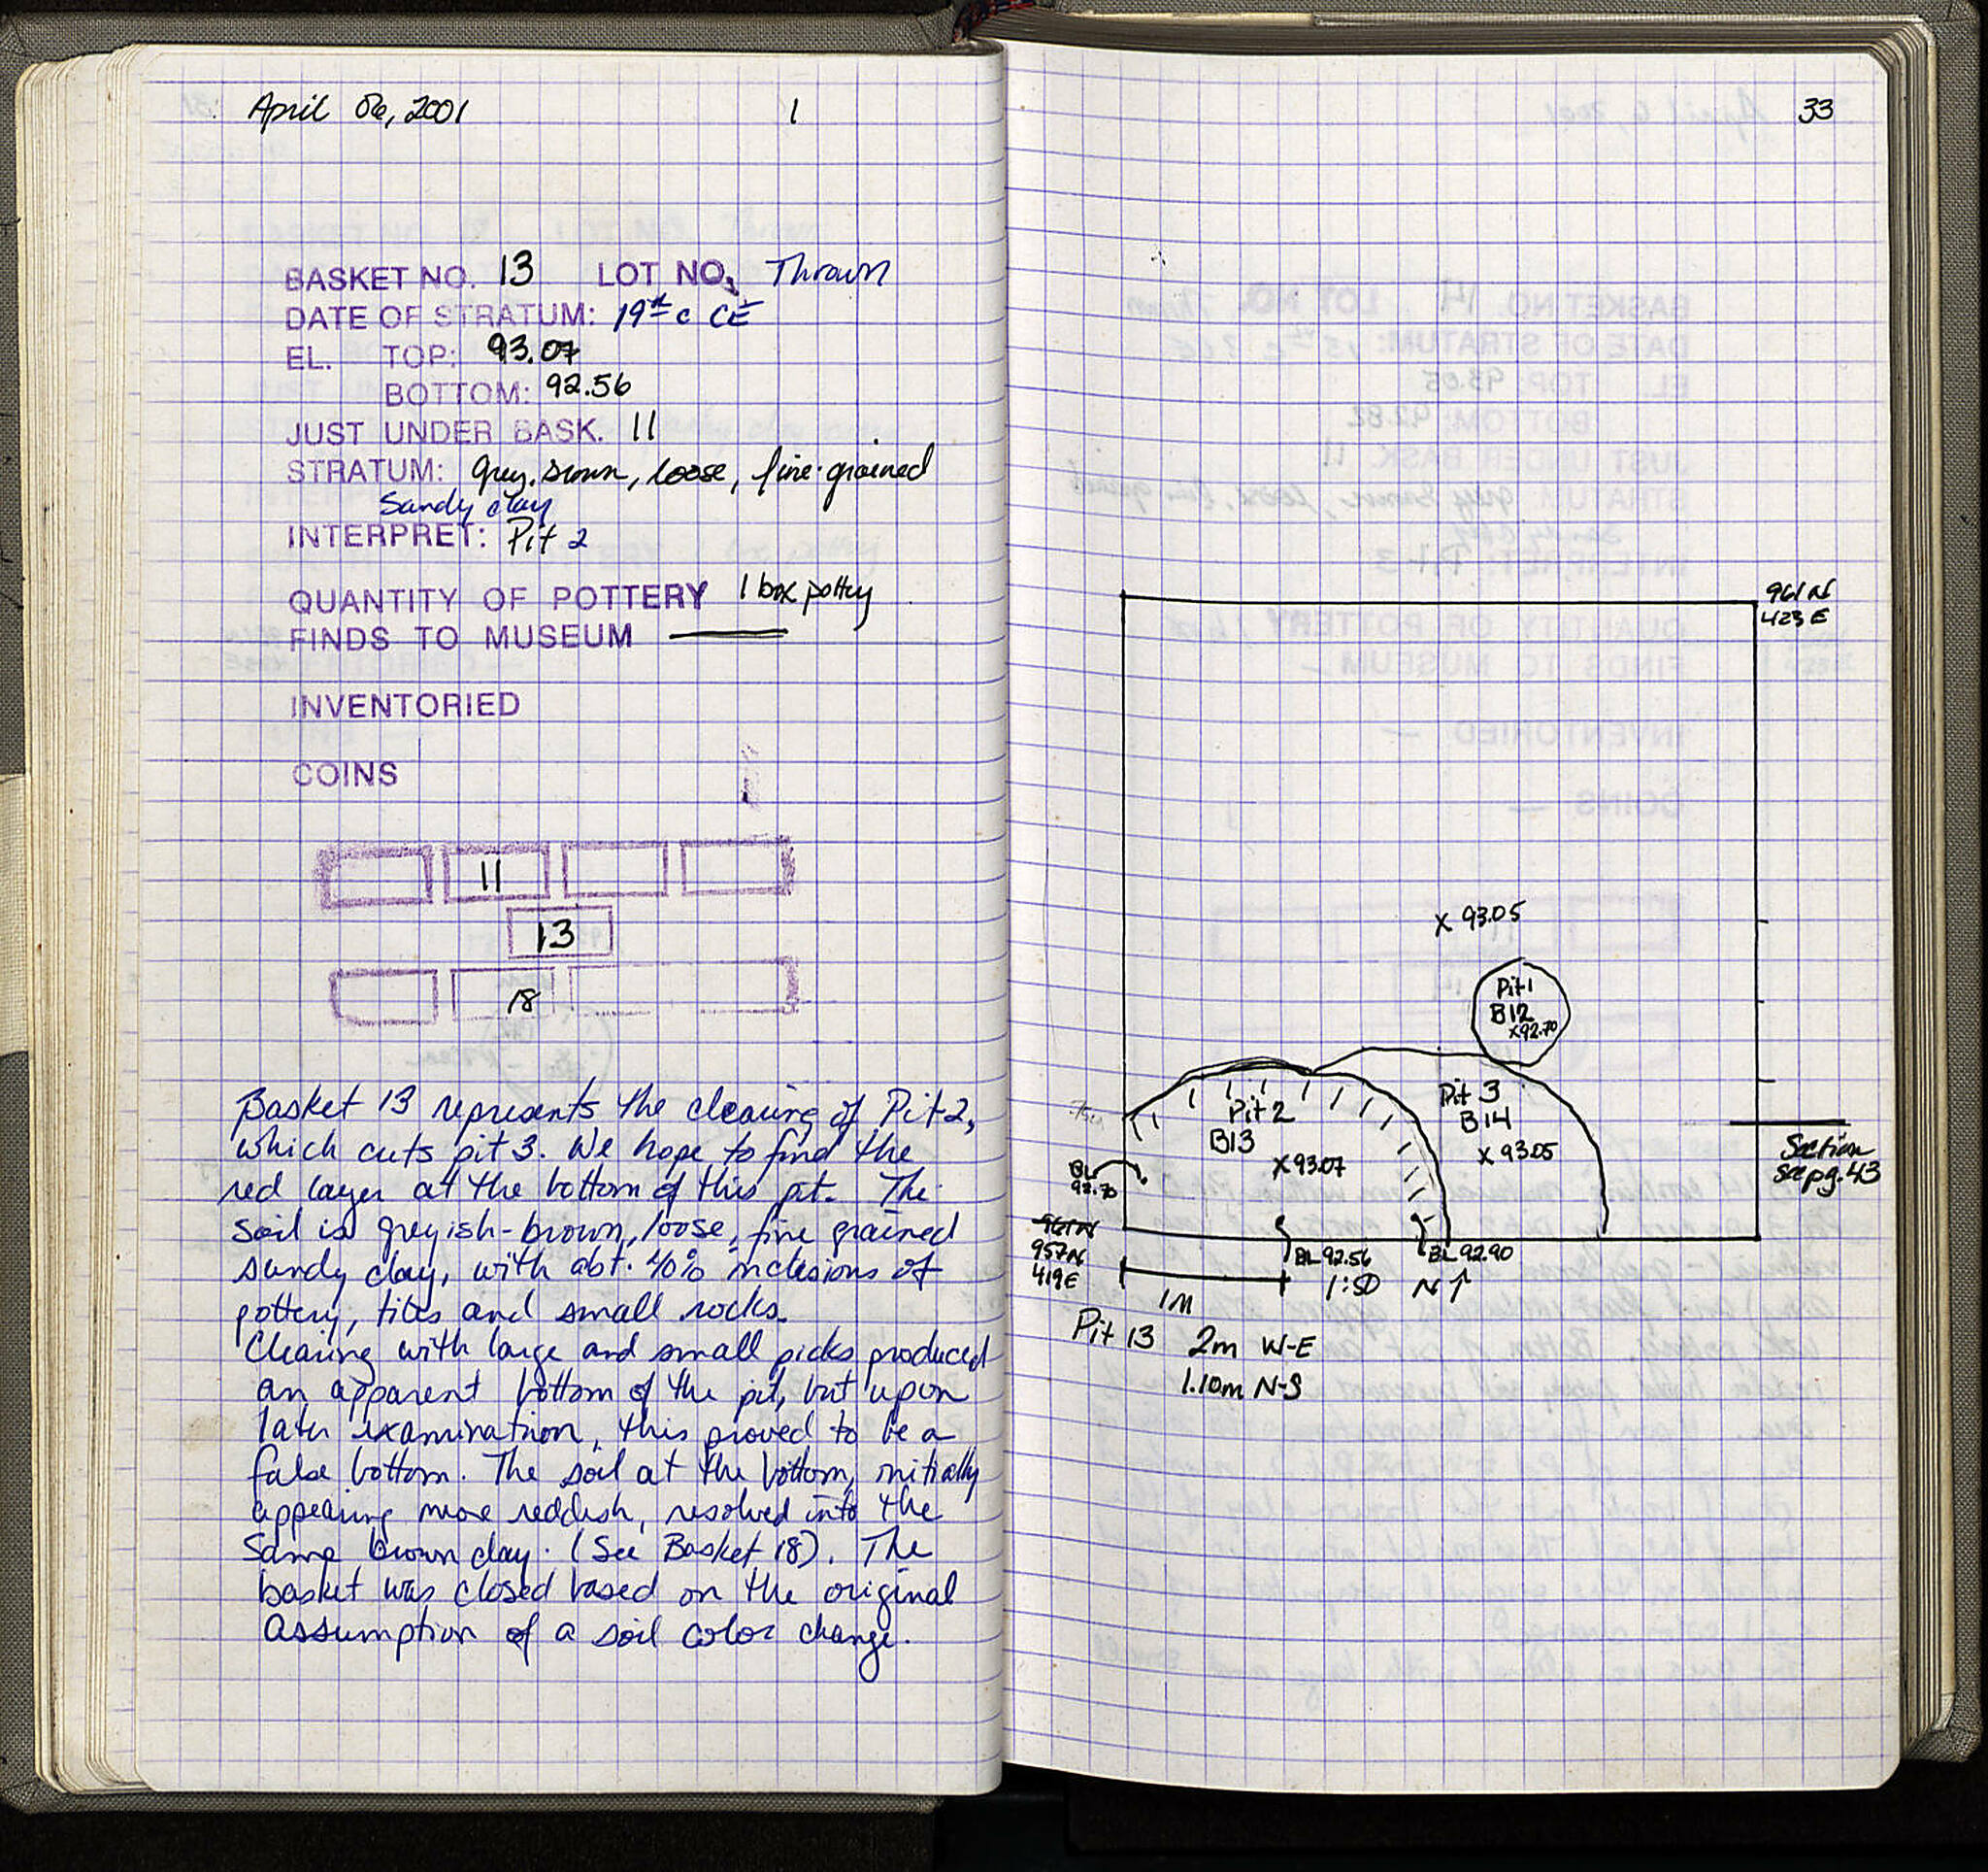 April 06, 2001 1
BASKET NO. 13 LOT NO. Thrown
DATE OF STRATUM: 19th c CE
EL. TOP: 93.07
BOTTOM: 92.56
JUST UNDER BASK. 11
STRATUM: grey.brown, loose, fine-grained
Sandy clay
INTERPRET: Pit 2
QUANTITY OF POTTERY 1 box pottery
FINDS TO MUSEUM —
INVENTORIED
COINS
11
13
18
Basket 13 represents the clearing of Pit 2,
which cuts pit 3. We hope to find the
red layer at the bottom of this pit. The
soil is greyish-brown, loose, fine grained
sandy clay, with abt. 40% inclusions of
pottery, tiles and small rocks.
Clearing with large and small picks produced
an apparent bottom of the pit, but upon
later examination, this proved to be a
false bottom. The soil at the bottom, initially
appearing more reddish, resolved into the
same brown clay. (See Basket 18). The
basket was closed based on the original
assumption of a soil color change.
33
961 N
423 E
X 93.05
Pit 1
B12
X92.70
Pit 3
B14
X 93.05
Pit 2
B13
X93.07
Section
see pg. 43
BL
92.70
961 N
957 N
419 E
BL 92.56
BL 92.90
1M
1:50 N↑
Pit 13 2m W-E
1.10m N-S